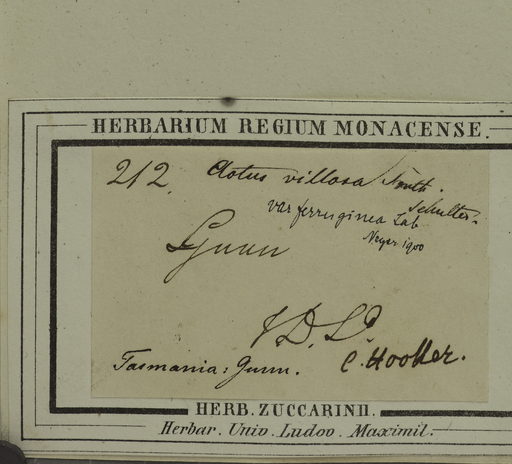 HERBARIUM REGIUM MONACENSE.
212. Aotus villosa Smith.
Schultes.
var ferruginea Lab
Neger 1900
Gunn
V.D.L.
C. Hooker.
Tasmania: Gunn.
HERB. ZUCCARINII.
Herbar. Univ. Ludov. Maximil.